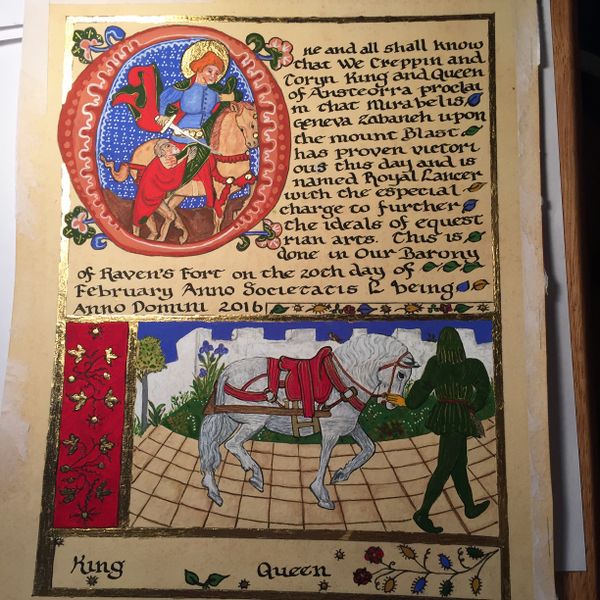 One and all shall know
that We Creppin and
Toryn King and Queen
of Ansteorra proclai
m that Mirabelis
Geneva Zabaneh upon
the mount Blast
has proven victori
ous this day and is
named Royal Lancer
with the especial
charge to further
the ideals of equest
rian arts. This is
done in Our Barony
of Raven's Fort on the 20th day of
February Anno Societatis L being
Anno Domini 2016
King Queen